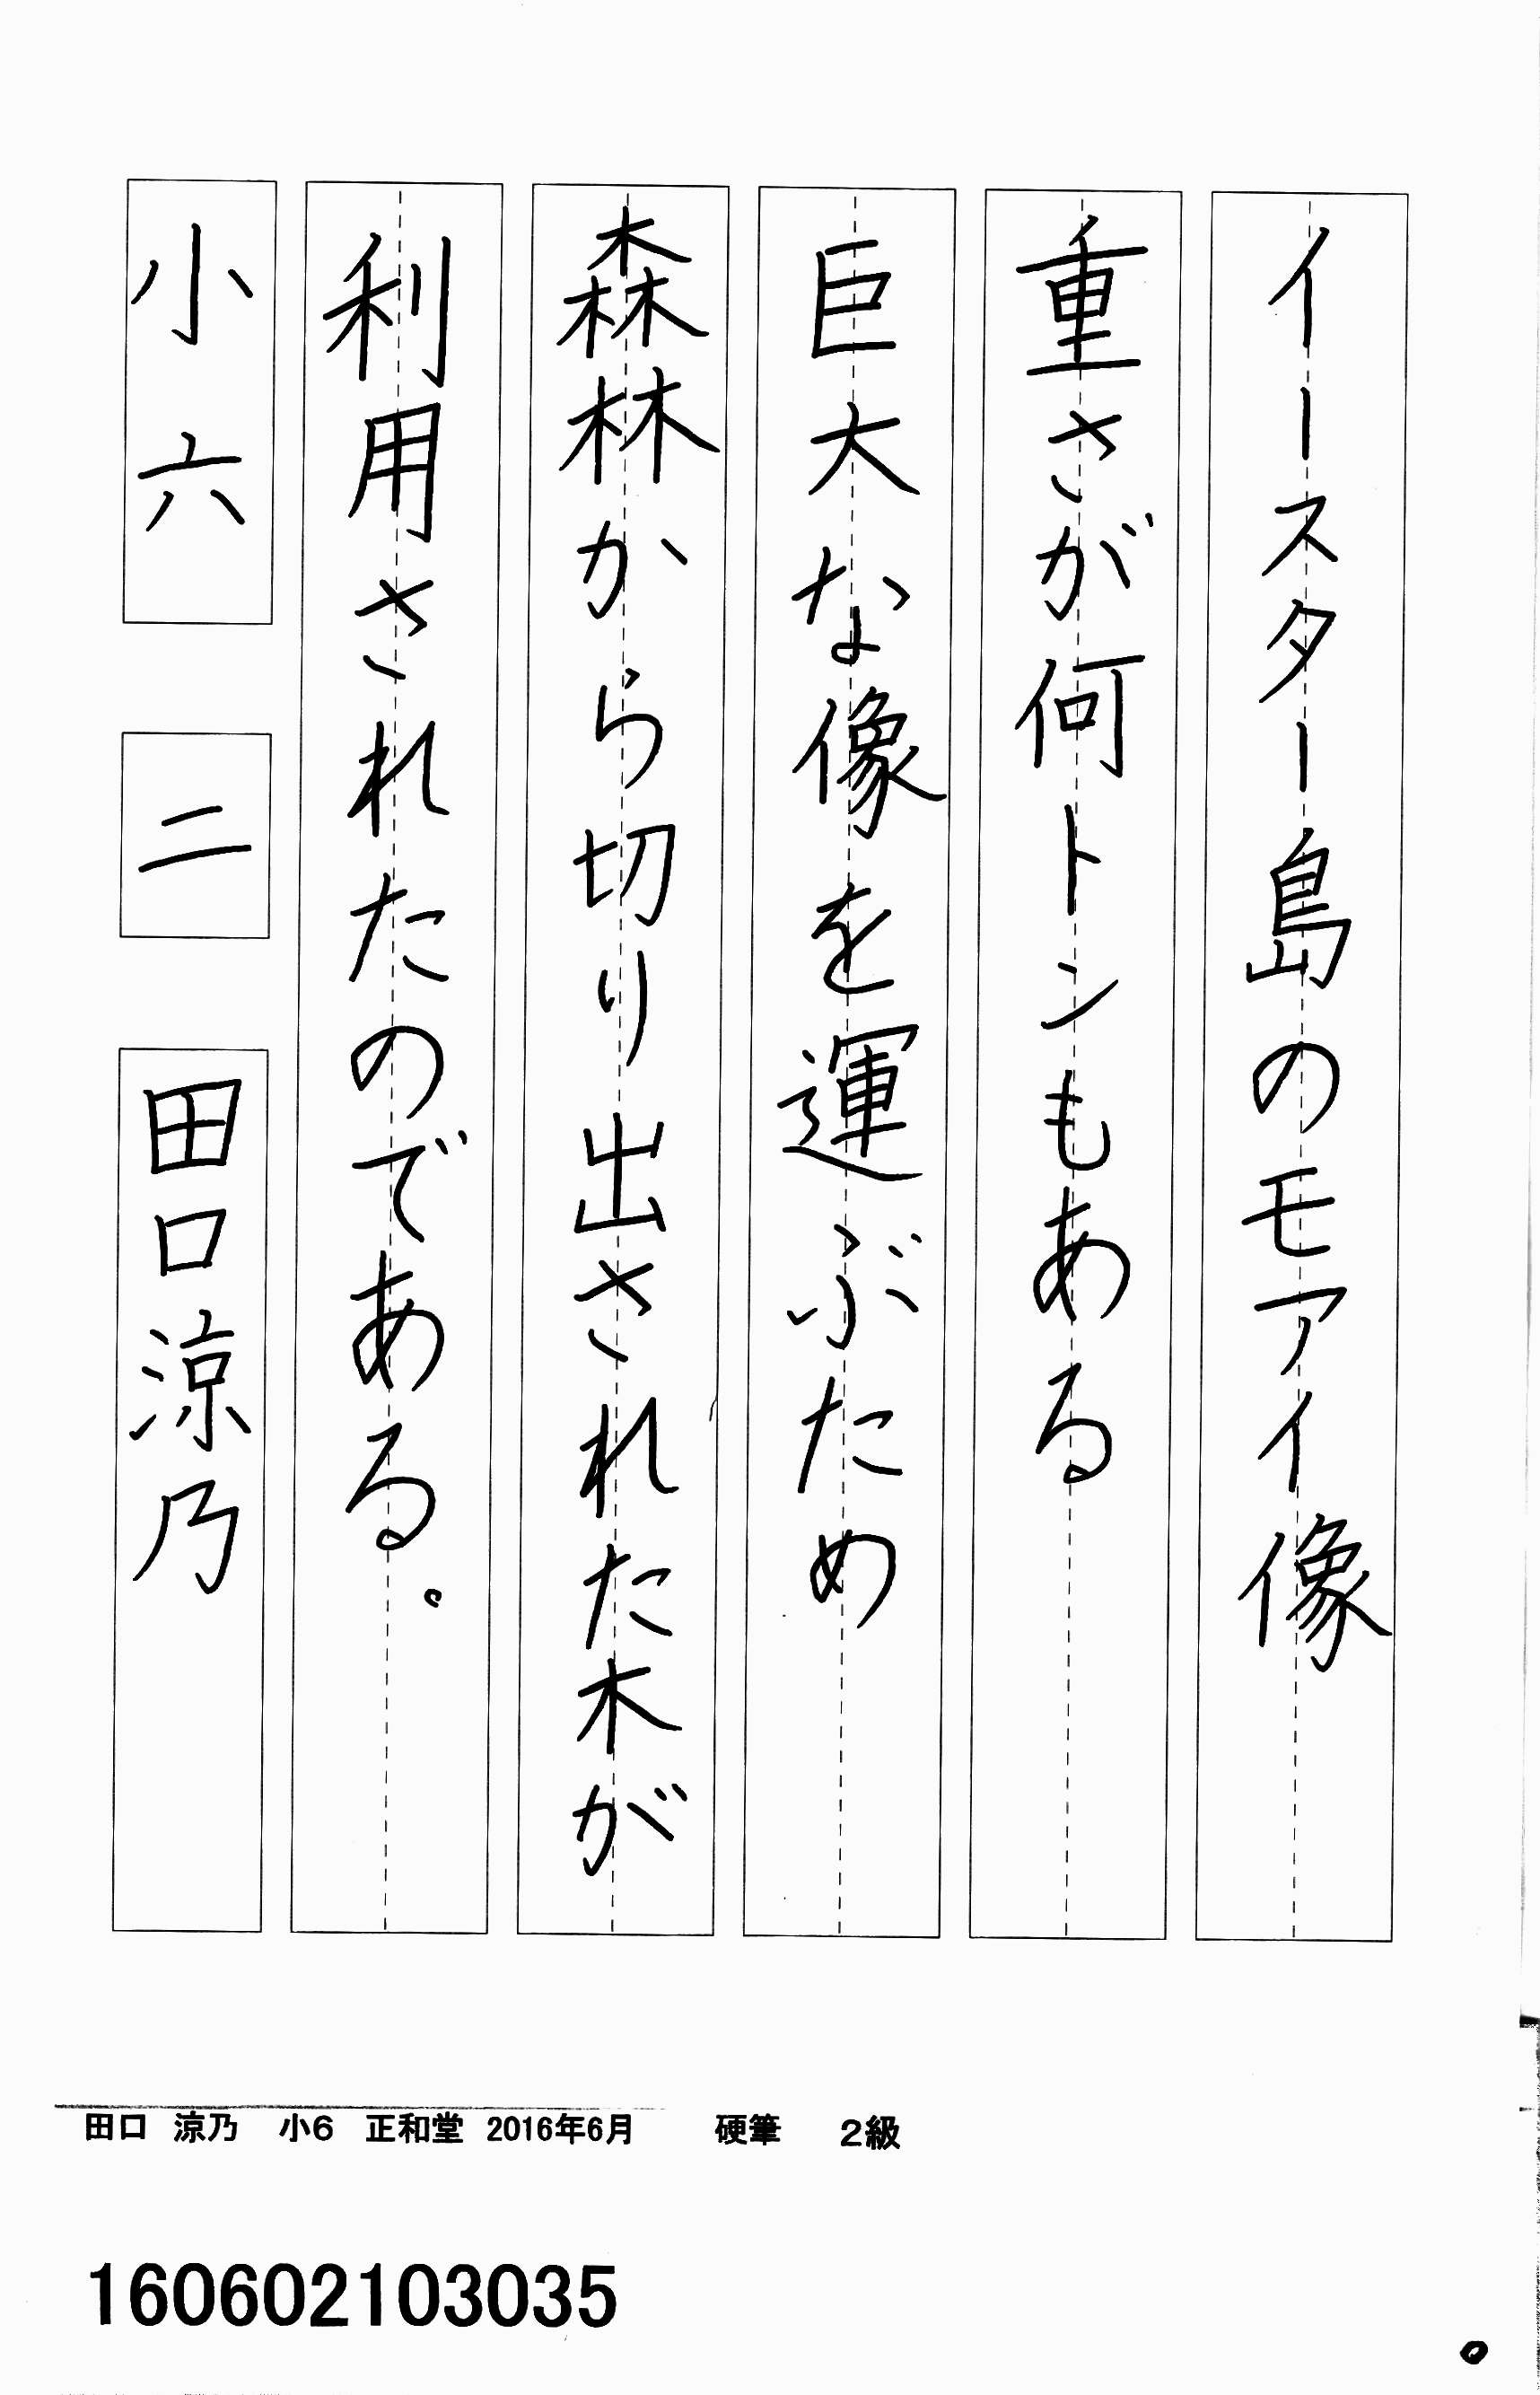 イースター島のモアイ像
重さが何トンもある
巨大な像を運ぶため
森林から切り出された木が
利用されたのである。
小六 二 田口涼乃
田口 涼乃 小6 正和堂 2016年6月 硬筆 2級
160602103035